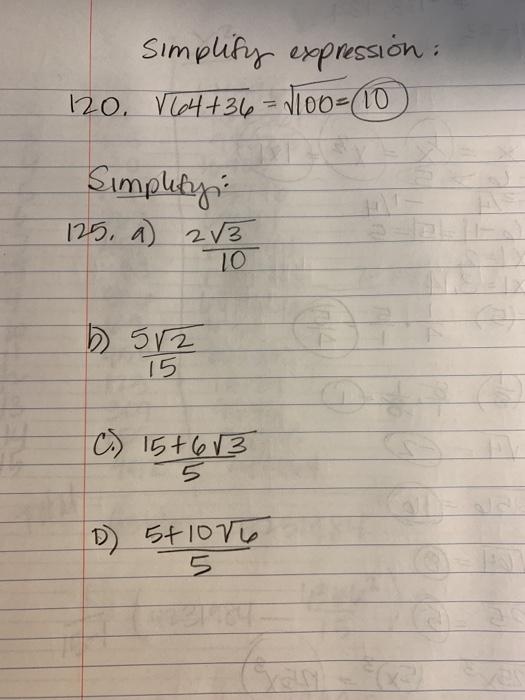 Simplify expression:
120. √64+36 = √100 = 10
Simplify:
125. a) 2√3
10
b) 5√2
15
C.) 15+6√3
5
D) 5+10√6
5